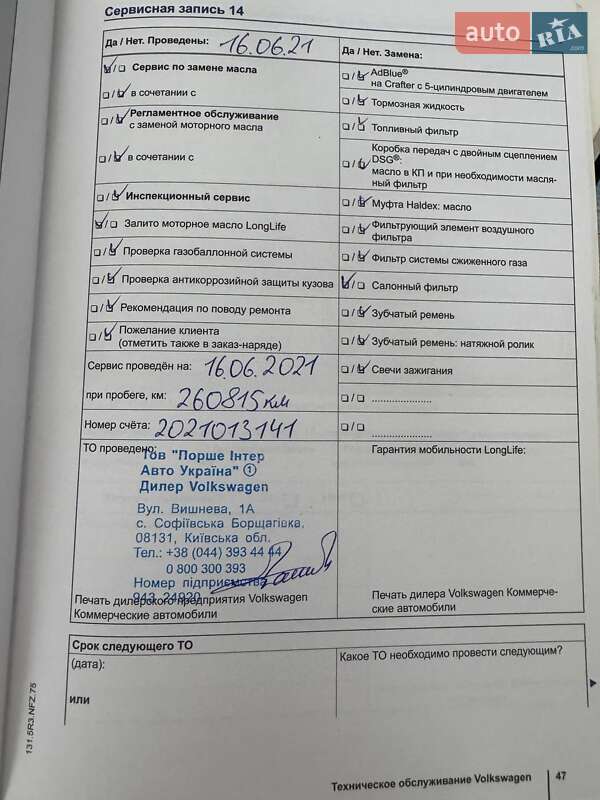 Сервисная запись 14
auto RIA .com
Да / Нет. Проведены: 16.06.21
Сервис по замене масла
в сочетании с
Регламентное обслуживание
с заменой моторного масла
в сочетании с
Инспекционный сервис
Залито моторное масло LongLife
Проверка газобаллонной системы
Проверка антикоррозийной защиты кузова
Рекомендация по поводу ремонта
Пожелание клиента
(отметить также в заказ-наряде)
Сервис проведён на: 16.06.2021
при пробеге, км: 260815 км
Номер счёта: 2021013141
ТО проведено:
Тов "Порше Інтер
Авто Україна" 1
Дилер Volkswagen
Вул. Вишнева, 1А
с. Софіївська Борщагівка,
08131, Київська обл.
Тел.: +38 (044) 393 44 44
0 800 300 393
Номер підприємства
943 24920
Печать дилерского предприятия Volkswagen
Коммерческие автомобили
Да / Нет. Замена:
AdBlue®
на Crafter с 5-цилиндровым двигателем
Тормозная жидкость
Топливный фильтр
Коробка передач с двойным сцеплением
DSG®:
масло в КП и при необходимости масля-
ный фильтр
Муфта Haldex: масло
Фильтрующий элемент воздушного
фильтра
Фильтр системы сжиженного газа
Салонный фильтр
Зубчатый ремень
Зубчатый ремень: натяжной ролик
Свечи зажигания
.....................
.....................
Гарантия мобильности LongLife:
Печать дилера Volkswagen Коммерче-
ские автомобили
Срок следующего ТО
(дата):
или
Какое ТО необходимо провести следующим?
131.5R3.NFZ.75
Техническое обслуживание Volkswagen 47